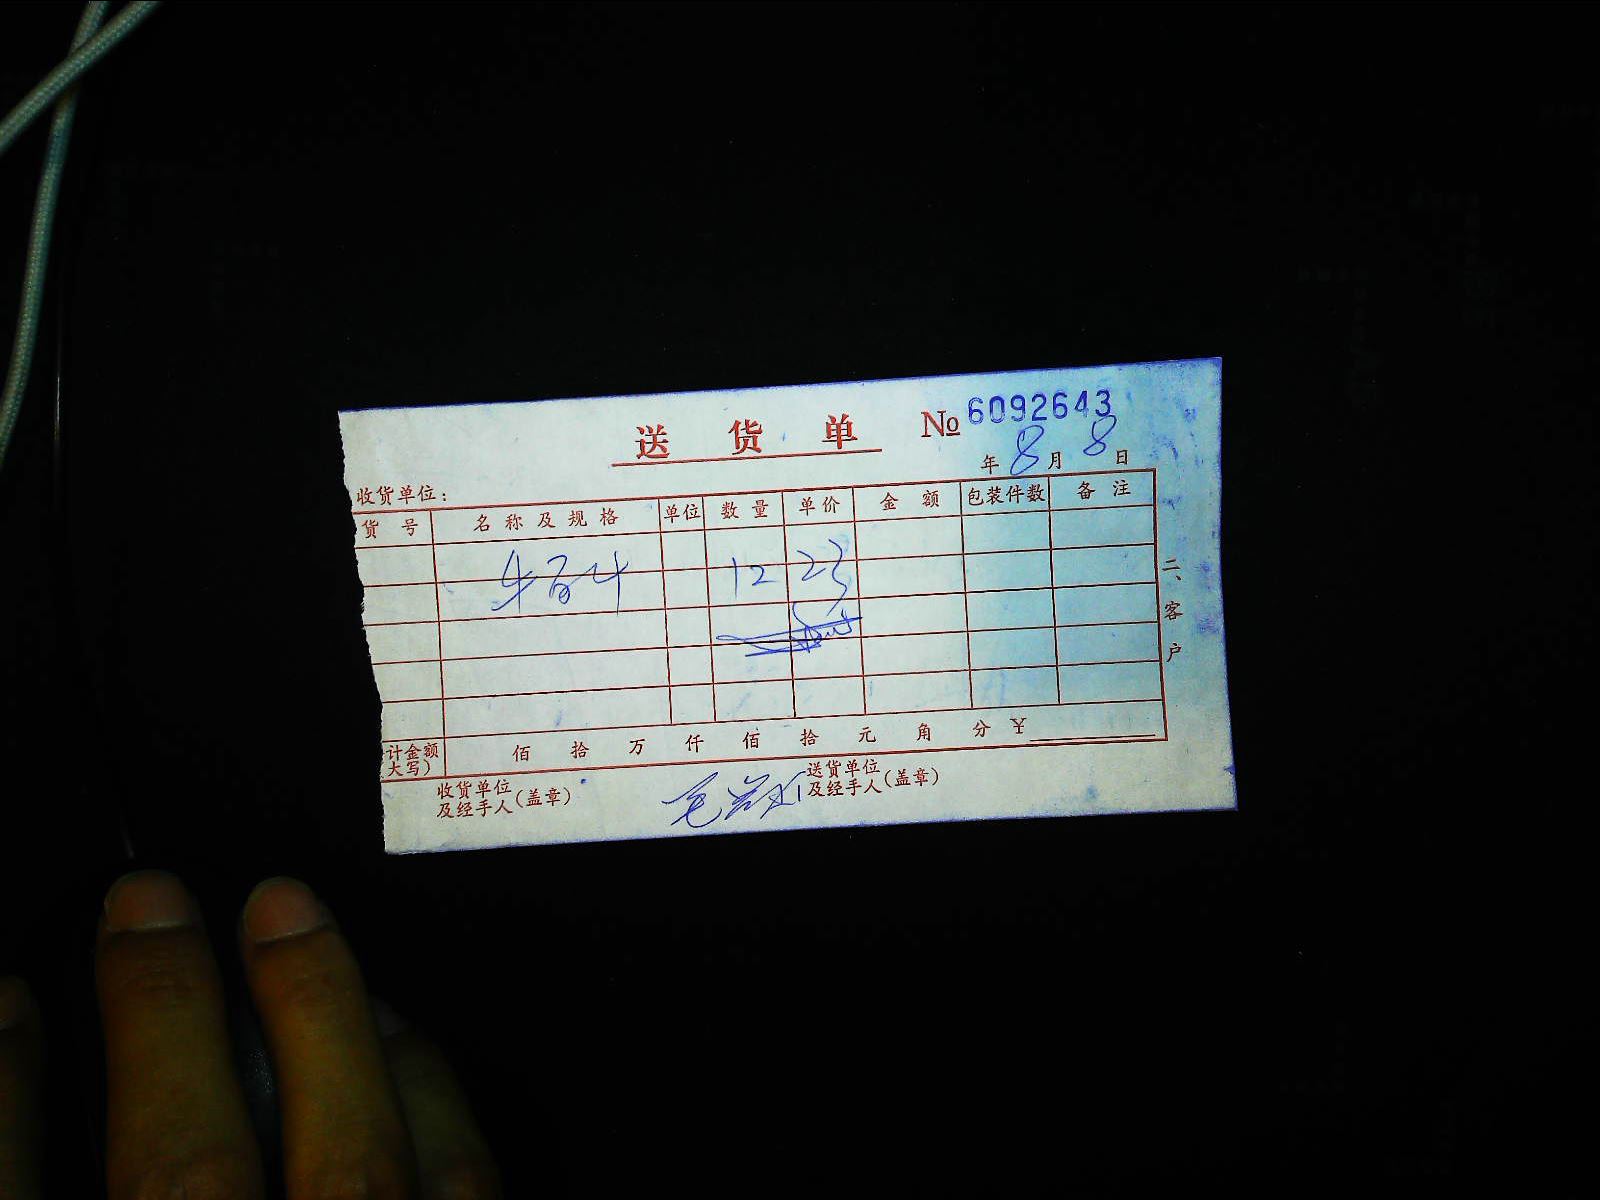 送货单 № 6092643
年 8 月 8 日
收货单位：
货号 名称及规格 单位 数量 单价 金额 包装件数 备注
牛百叶 12 23
计金额 佰 拾 万 仟 佰 拾 元 角 分 ¥
大写)
收货单位 送货单位
及经手人(盖章) 及经手人(盖章)
二、客户